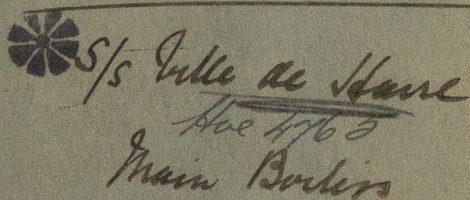 S/S Ville de Havre
Hoe 4765
Main Boilers